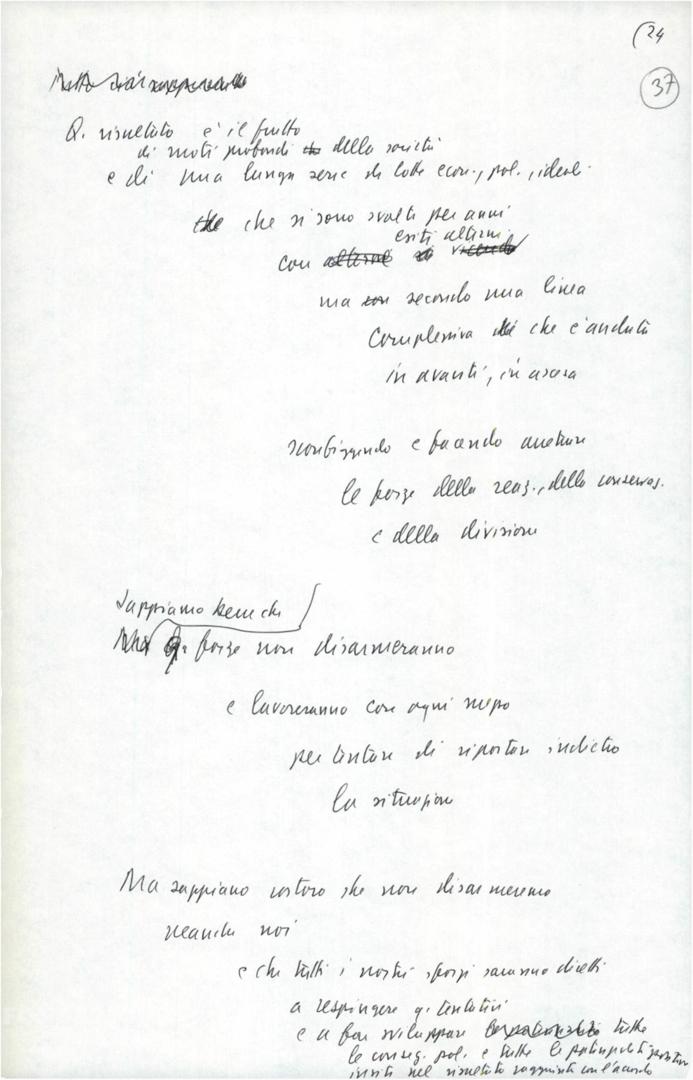 (24
37
Q. risultato è il frutto
di moti profondi della società
e di una lunga serie di lotte econ., pol., ideal.
che si sono svolte per anni
esiti alterni
con
ma secondo una linea
complessiva che è andata
in avanti, in ascesa
sconfiggendo e facendo arretrare
le forze della reaz., della conservaz.
e della divisione
Sappiamo bene che
q. forze non disarmeranno
e lavoreranno con ogni mezzo
per tentare di riportare indietro
la situazione
Ma sappiano costoro che non disarmeremo
neanche noi
e che tutti i nostri sforzi saranno diretti
a respingere q. tentativi
e a far sviluppare tutte
le conseg. pol. e tutte le potenzialità
insite nel risultato raggiunto con l'accordo